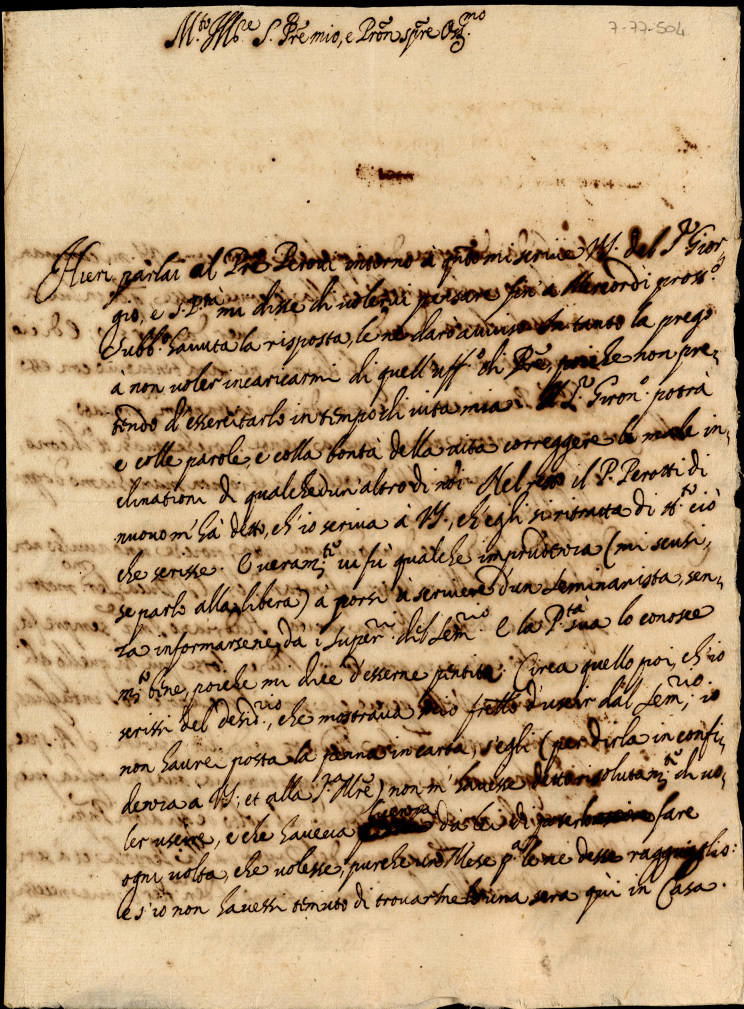 M.to Ill.re S. Pre mio, e Pron spre Oss.mo
7-77-504
Hieri parlai al Pre Perotti intorno a qnto mi scrive VS. del S.r Gior,
gio, e S. P.tà mi disse di volerci pensare fin' a Mercordi pross.o
subb.o havuta la risposta, le ne darò avviso. In tanto la prego
à non voler incaricarmi di quell'uff.o di Pre, poiche non pre,
tendo d'essercitarlo in tempo di vita mia. Il S.r Giron.o potrà
e colle parole, e colla bontà della vita correggere le male in,
clinationi di qualched'un altro di noi. Nel resto il P. Perotti di
nuovo m'hà detto, ch'io scriva à VS., ch'egli si ritratta di tt.o ciò
che scrisse. Overam.te vi fù qualche imprudenza (mi scusi,
se parlo alla libera) à porsi à scrivere d'un Seminarista, sen,
za informarsene da i Super.ri del Sem.rio. E la P.tà sua lo conosce
m.to bene, poiche mi dice d'esserne pentito. Circa quello poi, ch'io
scrissi del desid.rio, che mostrava mio frello d'uscir dal Sem.rio, io
non haurei posta la penna in carta, s'egli (per dirla in confi,
denza à VS. et alla S.ra Mre) non m'havesse detto risolutam.te di vo,
ler uscire, e che haveva licenza da lei di poterlo fare
ogni volta, che volesse, purche un Mese p.a le ne desse ragguaglio:
e s'io non havessi temuto di trovarmelo una sera quì in Casa.